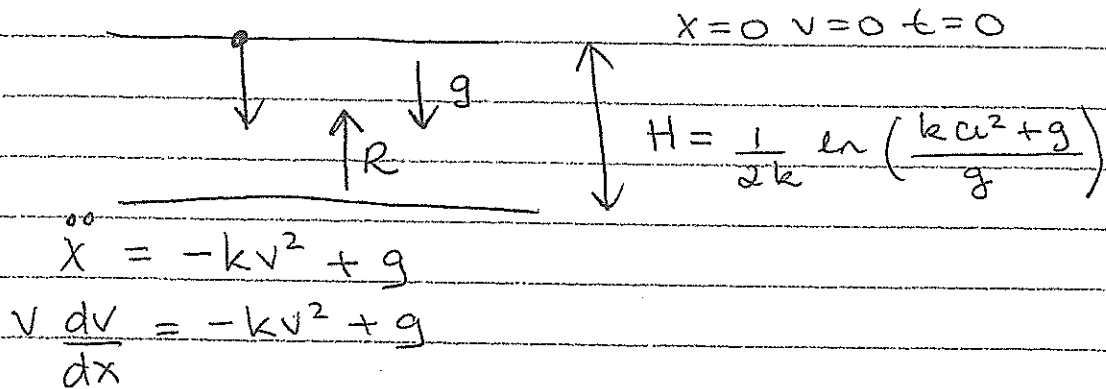 x = 0 v = 0 t = 0
g
R
H = 1/2k ln (ku² + g / g)
ẍ = -kv² + g
v dv/dx = -kv² + g